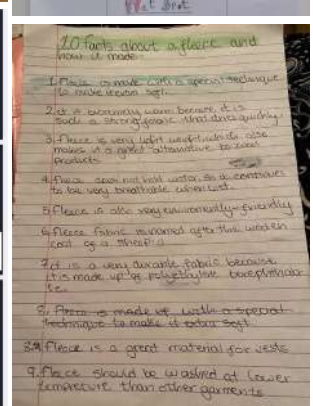 10 facts about a fleece and
how it made.
1. Fleece is made with a special technique
to make it extra soft.
2. it is extremely warm because it is
such a strong fabric that dries quickly.
3. fleece is very light weight which also
makes it a great alternative to wool
products
4. fleece does not hold water, so it continues
to be very breathable when wet.
5. Fleece is also very environmently-friendly
6. fleece fabric is named after the woolen
coat of a sheep.
7. it is a very durable fabric because
it is made up of polyethylene
te.
8. Fleece is made up with a special
technique to make it extra soft
8. Fleece is a great material for vests
9. flece should be washed at lower
temprecture than other garments